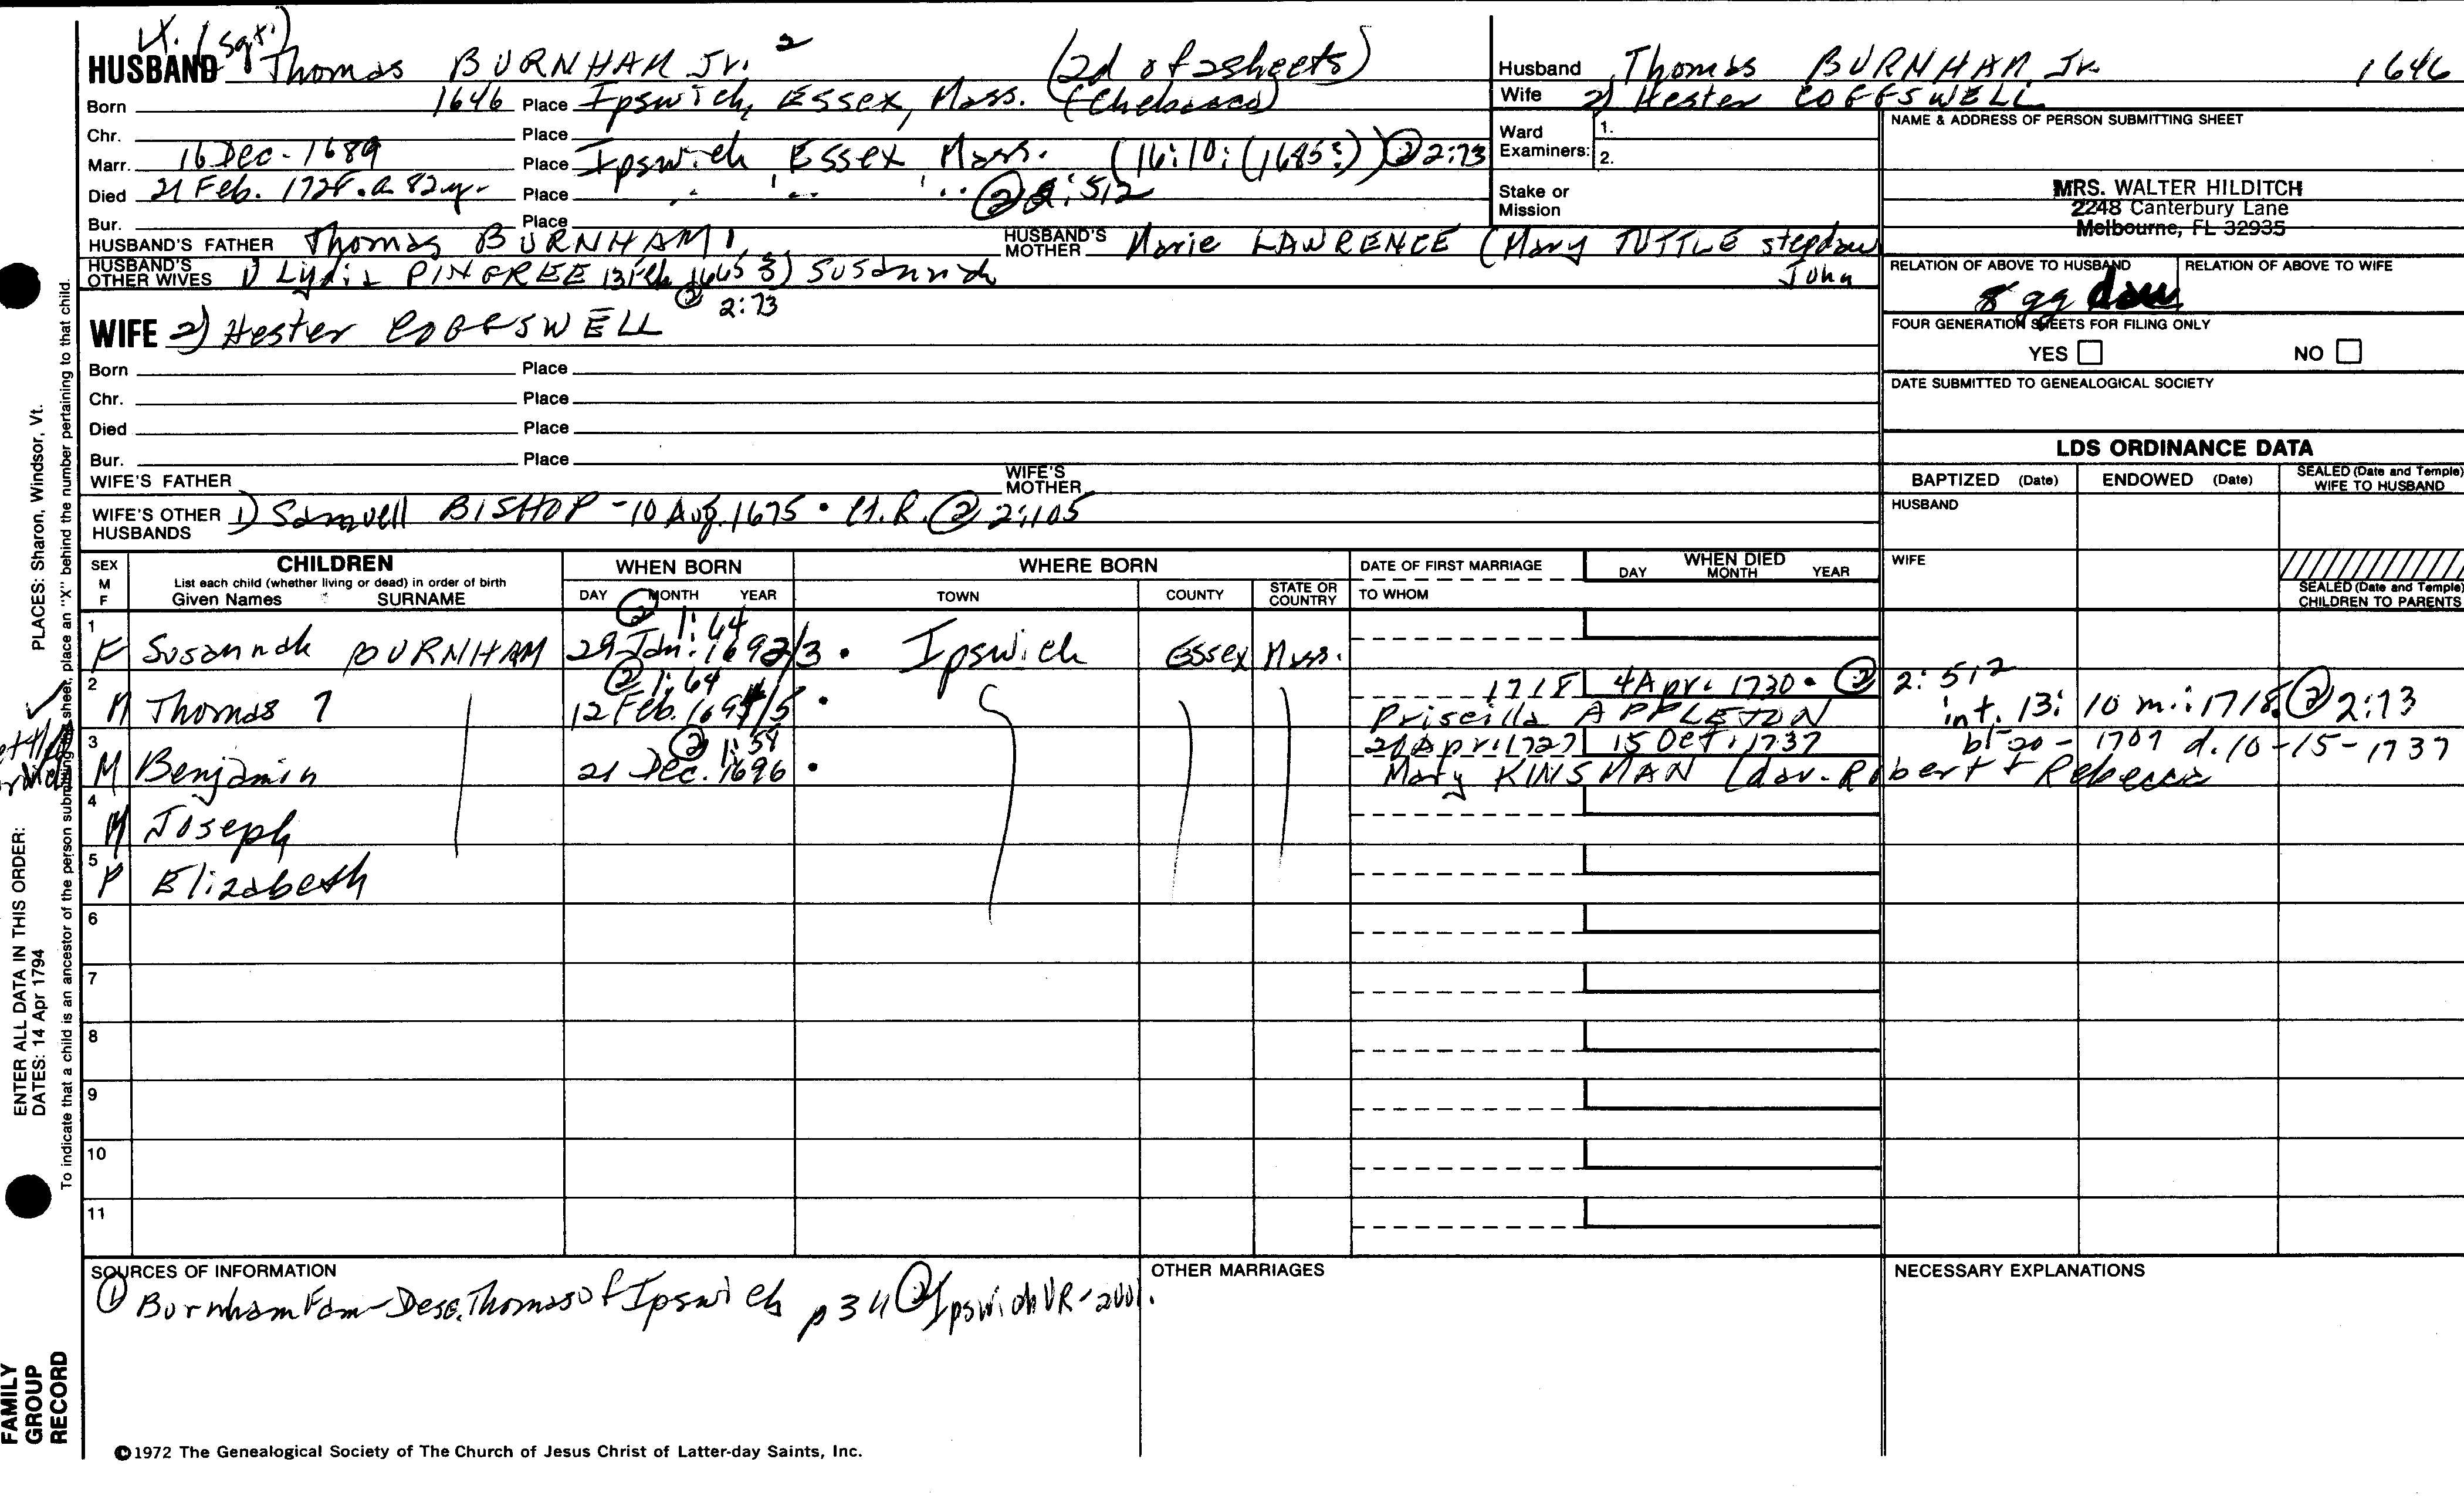 Lt. (Sgt.)
HUSBAND Thomas BURNHAM Jr. 2 (2d of 2 sheets)
Born 1646 Place Ipswich, Essex, Mass. (Chebacco)
Chr. Place
Marr. 16 Dec. 1689 Place Ipswich Essex Mass. (16:10:(1685?)) ② 2:73
Died 21 Feb. 1728. a 82 y. Place " " " ② 2:512
Bur. Place
HUSBAND'S FATHER Thomas BURNHAM 1 HUSBAND'S MOTHER Marie LAWRENCE (Mary TUTTLE stepdau John
HUSBAND'S OTHER WIVES 1) Lydia PINGREE 13 Feb 1665 3) Susannah
② 2:73
WIFE 2) Hester COGGSWELL
Born Place
Chr. Place
Died Place
Bur. Place
WIFE'S FATHER WIFE'S MOTHER
WIFE'S OTHER HUSBANDS 1) Samuell BISHOP - 10 Aug. 1675 • Ct. R. ② 2:105
Husband Thomas BURNHAM Jr. 1646
Wife 2) Hester COGGSWELL
Ward Examiners: 1.
2.
Stake or Mission
NAME & ADDRESS OF PERSON SUBMITTING SHEET
MRS. WALTER HILDITCH
2248 Canterbury Lane
Melbourne, FL 32935
RELATION OF ABOVE TO HUSBAND RELATION OF ABOVE TO WIFE
8 gg dau
FOUR GENERATION SHEETS FOR FILING ONLY
YES NO
DATE SUBMITTED TO GENEALOGICAL SOCIETY
LDS ORDINANCE DATA
BAPTIZED (Date) ENDOWED (Date) SEALED (Date and Temple) WIFE TO HUSBAND
HUSBAND
WIFE
SEALED (Date and Temple) CHILDREN TO PARENTS
SEX M F
CHILDREN
List each child (whether living or dead) in order of birth
Given Names SURNAME
WHEN BORN
DAY MONTH YEAR
WHERE BORN
TOWN COUNTY STATE OR COUNTRY
DATE OF FIRST MARRIAGE
TO WHOM
WHEN DIED
DAY MONTH YEAR
② 1:64
1 F Susannah BURNHAM 29 Jan. 1692/3 • Ipswich Essex Mass.
② 1:64 1718 4 Apr. 1730 • ② 2:512
2 M Thomas ? 12 Feb. 1694/5 • Priscilla APPLETON int. 13: 10 m.: 1718. ② 2:73
② 1:58 20 Apr. 1727 15 Oct. 1737 bt-20-1707 d. 10-15-1737
3 M Benjamin 21 Dec. 1696 • Mary KINSMAN (dau. Robert + Rebecca
4 M Joseph
5 F Elizabeth
6
7
8
9
10
11
SOURCES OF INFORMATION
① Burnham Fam - Desc. Thomas of Ipswich p 34 ② Ipswich VR - 2 vol.
OTHER MARRIAGES
NECESSARY EXPLANATIONS
©1972 The Genealogical Society of The Church of Jesus Christ of Latter-day Saints, Inc.
FAMILY GROUP RECORD
ENTER ALL DATA IN THIS ORDER:
DATES: 14 Apr 1794
PLACES: Sharon, Windsor, Vt.
To indicate that a child is an ancestor of the person submitting the sheet, place an "X" behind the number pertaining to that child.